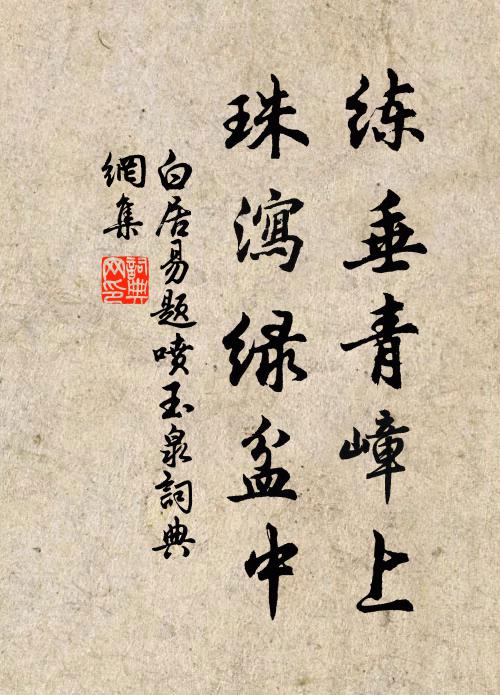 练垂青嶂上
珠瀉绿盆中
白居易题噴玉泉詞典
網集
詞典網印